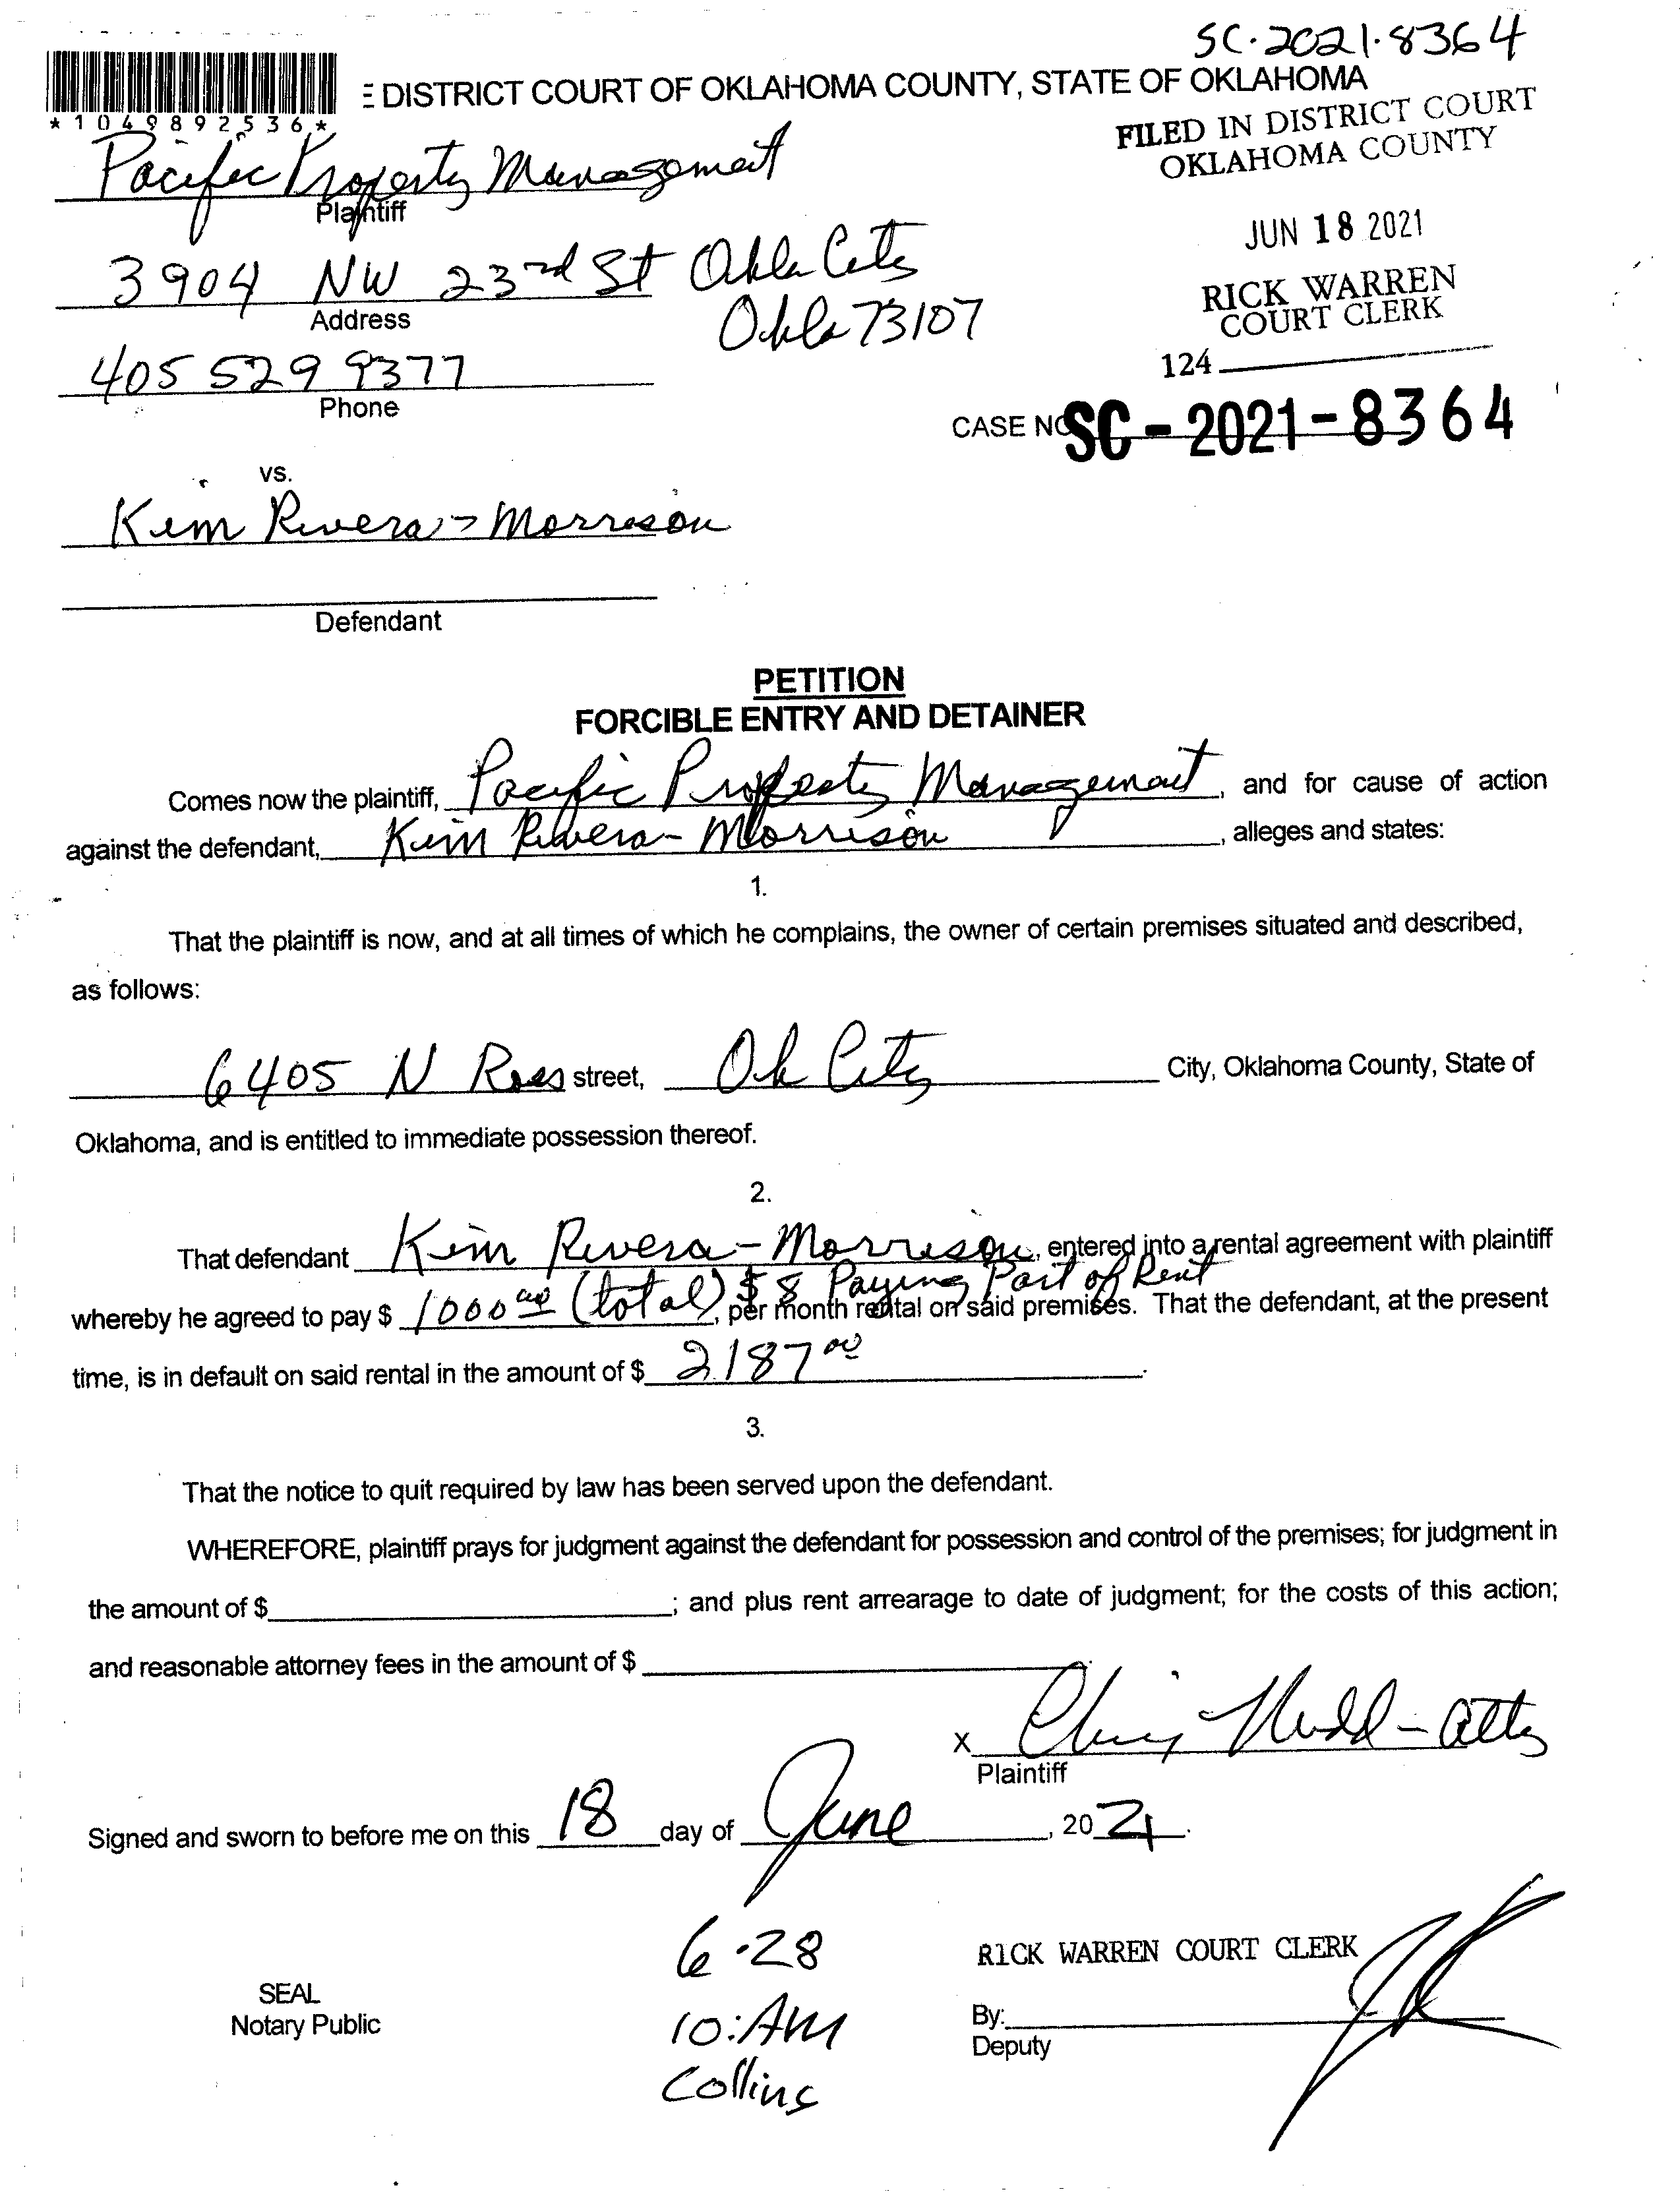 SC-2021-8364
*1049892536*
E DISTRICT COURT OF OKLAHOMA COUNTY, STATE OF OKLAHOMA
FILED IN DISTRICT COURT
OKLAHOMA COUNTY
Pacific Property Management
Plaintiff
JUN 18 2021
3904 NW 23rd St Okla City
Okla 73107
Address
RICK WARREN
COURT CLERK
124
405 529 9377
Phone
CASE NO SC-2021-8364
vs.
Kim Rivera-Morrison
Defendant
PETITION
FORCIBLE ENTRY AND DETAINER
Comes now the plaintiff, Pacific Property Management, and for cause of action
against the defendant, Kim Rivera-Morrison, alleges and states:
1.
That the plaintiff is now, and at all times of which he complains, the owner of certain premises situated and described,
as follows:
6405 N Ross street, Ok City City, Oklahoma County, State of
Oklahoma, and is entitled to immediate possession thereof.
2.
That defendant Kim Rivera-Morrison, entered into a rental agreement with plaintiff
Paying Part of Rent
whereby he agreed to pay $ 1000 00 (total) $ 8, per month rental on said premises. That the defendant, at the present
time, is in default on said rental in the amount of $ 2187 00.
3.
That the notice to quit required by law has been served upon the defendant.
WHEREFORE, plaintiff prays for judgment against the defendant for possession and control of the premises; for judgment in
the amount of $; and plus rent arrearage to date of judgment; for the costs of this action;
and reasonable attorney fees in the amount of $
X - atty
Plaintiff
Signed and sworn to before me on this 18 day of June, 2021.
6-28
10:AM
Collins
SEAL
Notary Public
RICK WARREN COURT CLERK
By:
Deputy